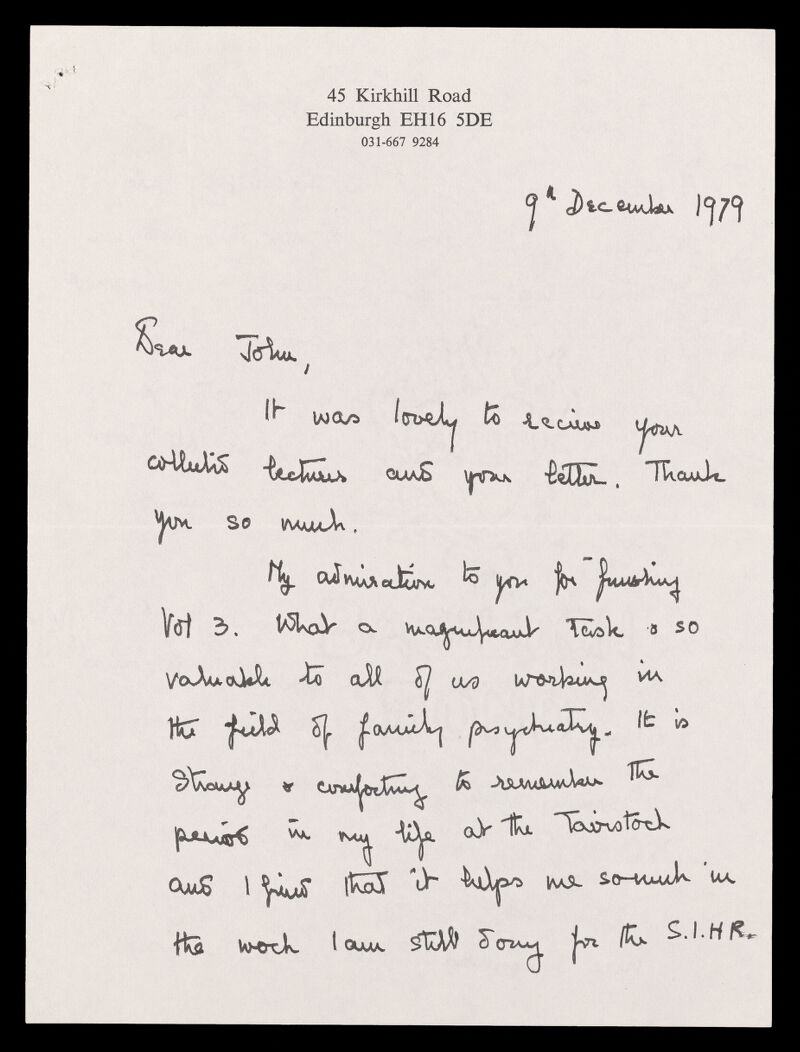 45 Kirkhill Road
Edinburgh EH16 5DE
031-667 9284
9th December 1979
Dear John,
It was lovely to recieve your
collected lectures and your letter. Thank
you so much.
My admiration to you for finishing
Vol 3. What a magnificant task & so
valuable to all of us working in
the field of family psychiatry. It is
strange & comforting to remember the
period in my life at the Tavistock
and I find that it helps me so much in
the work I am still doing for the S.I.H.R.